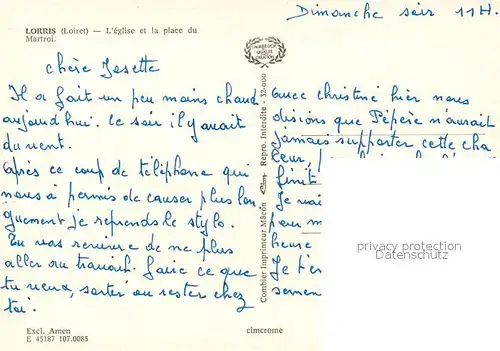 Dimanche soir 11H.
LORRIS (Loiret) — L'église et la place du
Martroi.
LAURIER D'OR
QUALITÉ
CRÉATION
chère Josette
Il a fait un peu moins chaud
aujourd'hui. le soir il y avait
du vent.
après ce coup de téléphone qui
nous a permis de causer plus lon
guement je reprends le stylo.
Tu vas revivre de ne plus
aller au travail. Faire ce que
tu veux, sortir ou rester chez
toi.
Excl. Amen
E 45187 107.0085
Combier Imprimeur Mâcon Cim Repro. Interdite - 32-000
cimcrome
avec christine hier nous
disions que Pépère n'aurait
jamais supporter cette cha
leur,
finit
Je vai
peu m
heure
Je t'e
semen
privacy protection
Datenschutz